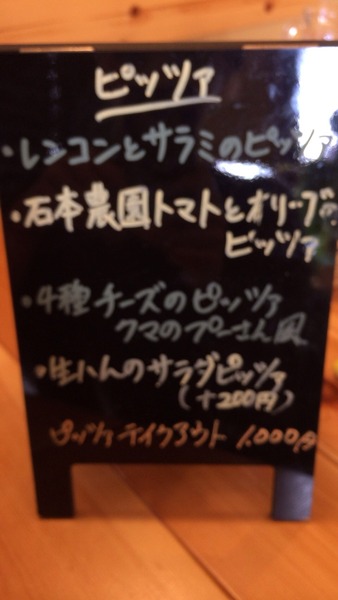 ピッツァ
・レンコンとサラミのピッツァ
・石本農園トマトとオリーブの
ピッツァ
・4種チーズのピッツァ
クマのプーさん風
・生ハムのサラダピッツァ
(+200円)
ピッツァテイクアウト 1,000円